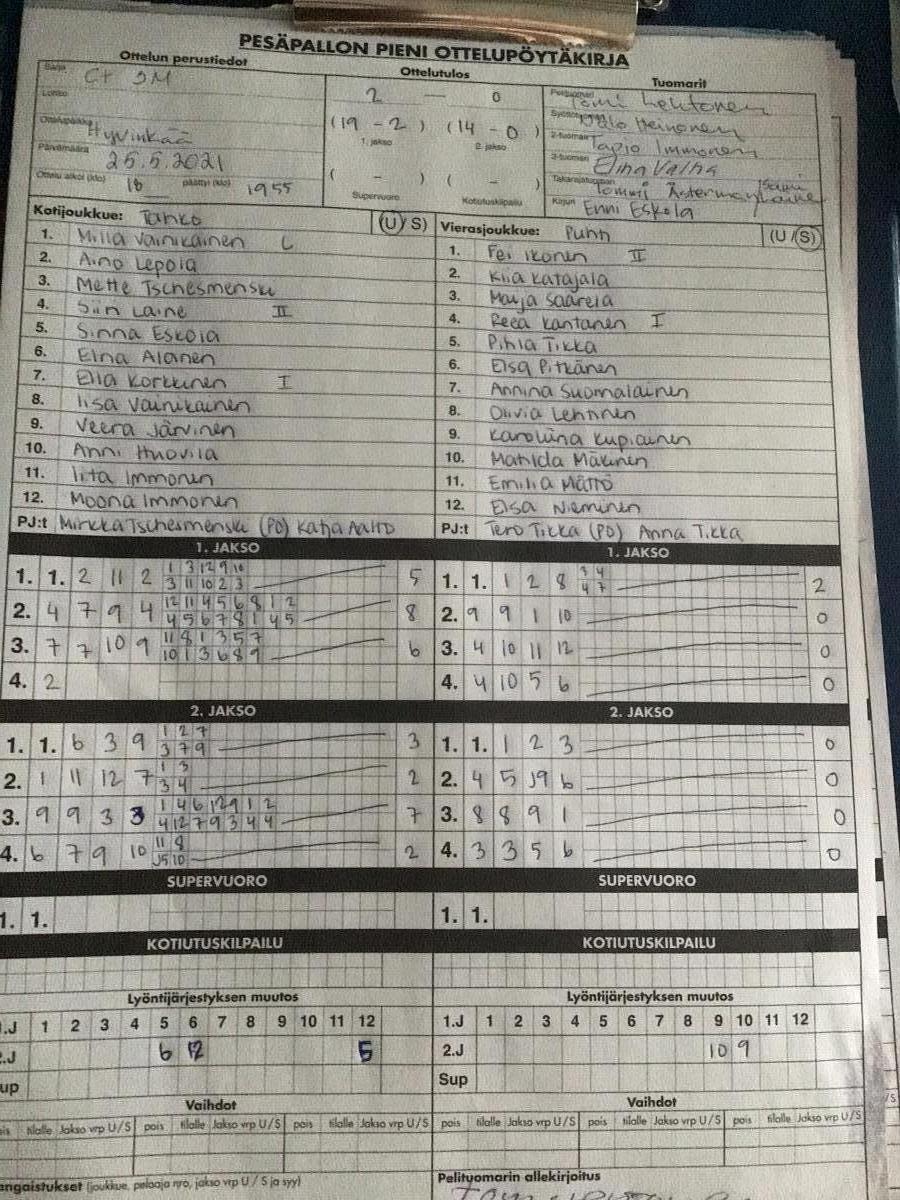 PESÄPALLON PIENI OTTELUPÖYTÄKIRJA
Ottelun perustiedot
Ottelutulos
Tuomarit
Sarja C+ SM
Lohko
Ottelupaikka Hyvinkää
Päivämäärä 25.5.2021
Ottelu alkoi (klo) 18 päättyi (klo) 1955
2 — 0
(19 - 2) (14 - 0)
1. jakso 2. jakso
( - ) ( - )
Supervuoro Kotiutuskilpailu
Pelituomari Tomi Lehtonen
Heinonen
2-tuomari Tapio Immonen
3-tuomari Elina
Takarajatuomari Tommi
Kirjuri Enni Eskola
Kotijoukkue: Tahko (U/S)
1. Milla Vainikainen L
2. Aino Lepola
3. Mette Tschesmensku
4. Siiri Laine II
5. Sinna Eskola
6. Elna Alanen
7. Ella Korkkinen I
8. Iisa Vainikainen
9. Veera Järvinen
10. Anni Huovila
11. Iita Immonen
12. Moona Immonen
PJ:t Mirkka Tschesmensku (PJ) Katja Aalto
Vierasjoukkue: Puhti (U/S)
1. Fei Ikonen II
2. Kiia Katajala
3. Maija Saarela
4. Reea Kantanen I
5. Pihla Tikka
6. Elsa Pitkänen
7. Annina Suomalainen
8. Olivia Lehtinen
9. Karoliina Kupiainen
10. Matilda Mäkinen
11. Emilia Mättö
12. Elsa Nieminen
PJ:t Tero Tikka (PJ) Anna Tikka
1. JAKSO
1. 1. 2 11 2 1 3 12 9 10 5
3 11 10 2 3
2. 4 7 9 4 12 11 4 5 6 8 1 2 8
4 5 6 7 8 1 4 5
3. 7 7 10 9 11 8 1 3 5 7 6
10 1 3 6 8 9
4. 2
1. JAKSO
1. 1. 1 2 8 3 4 2
4 7
2. 9 9 1 10 0
3. 4 10 11 12 0
4. 4 10 5 6 0
2. JAKSO
1. 1. 6 3 9 1 2 7 3
3 7 9
2. 1 11 12 7 1 3 2
3 4
3. 9 9 3 3 1 4 6 12 9 1 2 7
4 12 7 9 3 4 4
4. 6 7 9 10 11 8 2
J5 10
2. JAKSO
1. 1. 1 2 3 0
2. 4 5 J9 6 0
3. 8 8 9 1 0
4. 3 3 5 6 0
SUPERVUORO
1. 1.
SUPERVUORO
1. 1.
KOTIUTUSKILPAILU
KOTIUTUSKILPAILU
Lyöntijärjestyksen muutos
.J 1 2 3 4 5 6 7 8 9 10 11 12
.J 6 12 5
up
Lyöntijärjestyksen muutos
1.J 1 2 3 4 5 6 7 8 9 10 11 12
2.J 10 9
Sup
Vaihdot
ois tilalle Jakso vrp U/S pois tilalle Jakso vrp U/S pois tilalle Jakso vrp U/S
Vaihdot
pois tilalle Jakso vrp U/S pois tilalle Jakso vrp U/S pois tilalle Jakso vrp U/S
angaistukset (joukkue, pelaaja nro, jakso vrp U / S ja syy)
Pelituomarin allekirjoitus